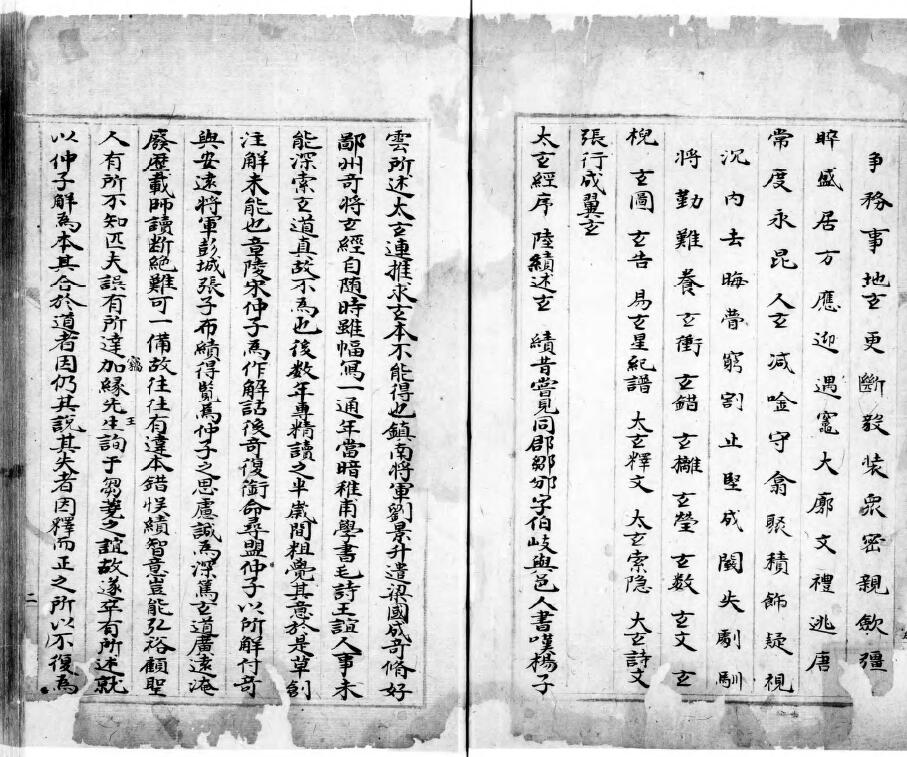 爭務事地玄更斷毅裝衆密親歛彊
睟盛居方應迎遇竈大廓文禮逃唐
常度永昆人玄减唫守翕聚積飾疑視
沉内去晦瞢窮割止堅成闕失劇馴
將勤難養玄衝玄錯玄攡玄瑩玄数玄文玄
棿玄圖玄告易玄星紀譜太玄釋文太玄索隐太玄詩文
張行成翼玄
太玄經序陸績述玄績昔嘗見同郡鄒邠字伯岐與邑人書嘆楊子
雲所述太玄連推求玄本不能得也鎮南將軍劉景升遣梁國成竒脩好
鄙州竒將玄經自随時雖幅寫一通年當暗稚甫學書毛詩王誼人事未
能深索玄道真故不爲也後数年專精讀之半歲間粗覺其意於是草創
注解未能也章陵宋仲子爲作解詁後竒復銜命尋盟仲子以所解付竒
與安遠將軍彭城張子布績得覧焉仲子之思慮誠爲深篤玄道廣遠淹
廢歷載師讀断絶難可一備故往往有違本錯悮績智意豈能弘裕顧聖
人有所不知匹夫誤有所達加緣先生詢于芻蕘之誼故遂卒有所述就
以仲子解爲本其合於道者因仍其說其失者因釋而正之所以不復爲
王
二